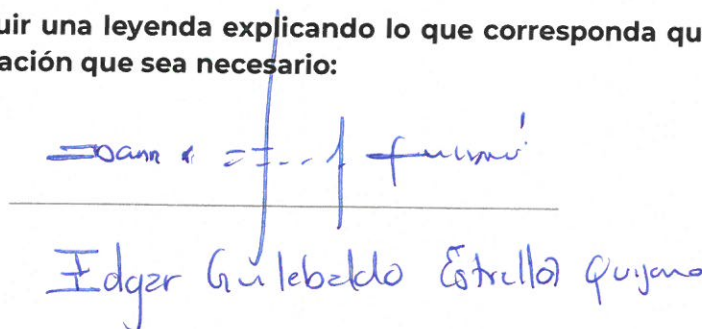 uir una leyenda explicando lo que corresponda qu
ación que sea necesario:
Edgar Guilebaldo Estrella Quijano